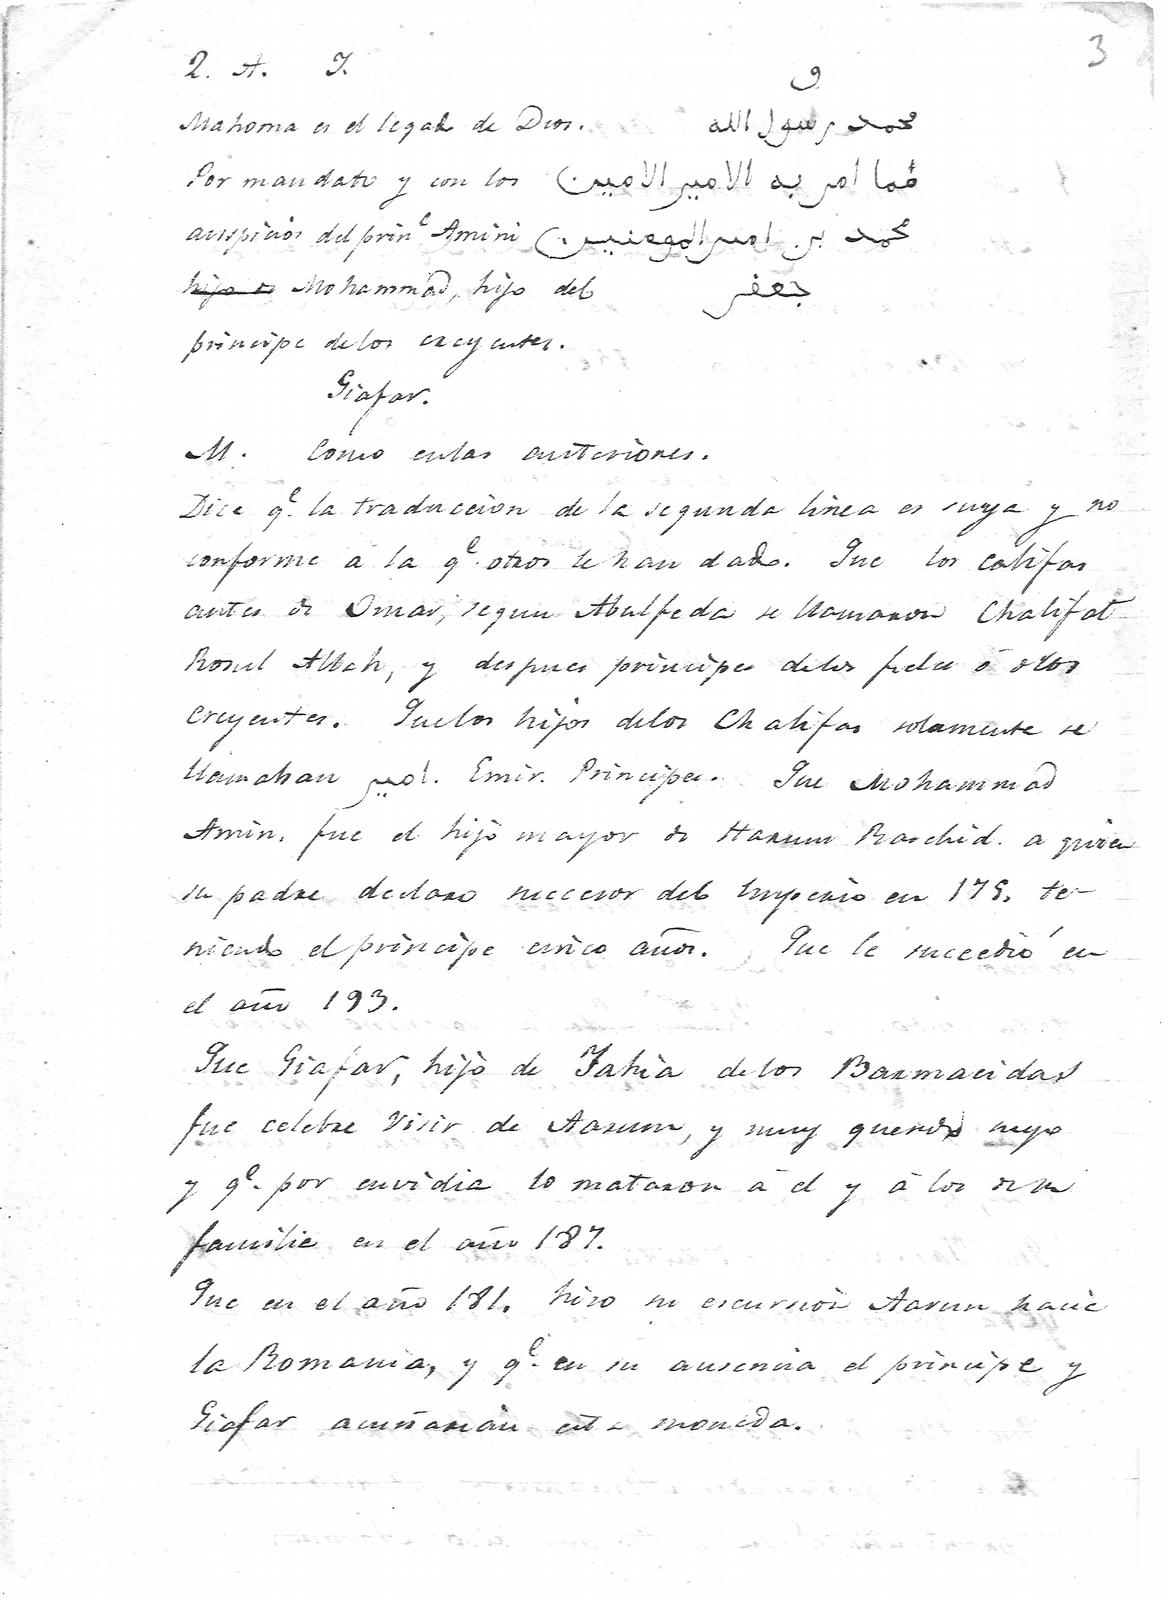 3
2. A. I.
و
Mahoma es el legad de Dios. محمد رسول الله
Por mandato y con los مما امر به الامير الامين
auspicios del prin^e Amini محمد بن امير المومنين
hijo de Mohammad, hijo del جعفر
principe de los creyentes.
Giafar.
M. Como en las anteriores.
Dice q^e la traduccion de la segunda linea es suya y no
conforme á la q^e otros le han dado. Que los califas
antes de Omar, segun Abulfeda se llamaron Chalifat
Rosul Allah, y despues principes de los fieles ó de los
creyentes. Que los hijos de los Chalifas solamente se
llamaban امير. Emir. Principes. Que Mohammad
Amin, fue el hijo mayor de Harun Raschid. a quien
su padre declaro succesor del Imperio en 175. te-
niendo el principe cinco años. Que le succedió en
el año 193.
Que Giafar, hijo de Iahia de los Barmacidas
fue celebre Visir de Aarum, y muy querido suyo
y q^e por envidia lo mataron á el y á los de su
familie en el año 187.
Que en el año 181. hizo su escursion Aarun hacie
la Romania, y q^e en su ausencia el principe y
Giafar acuñarian esta moneda.